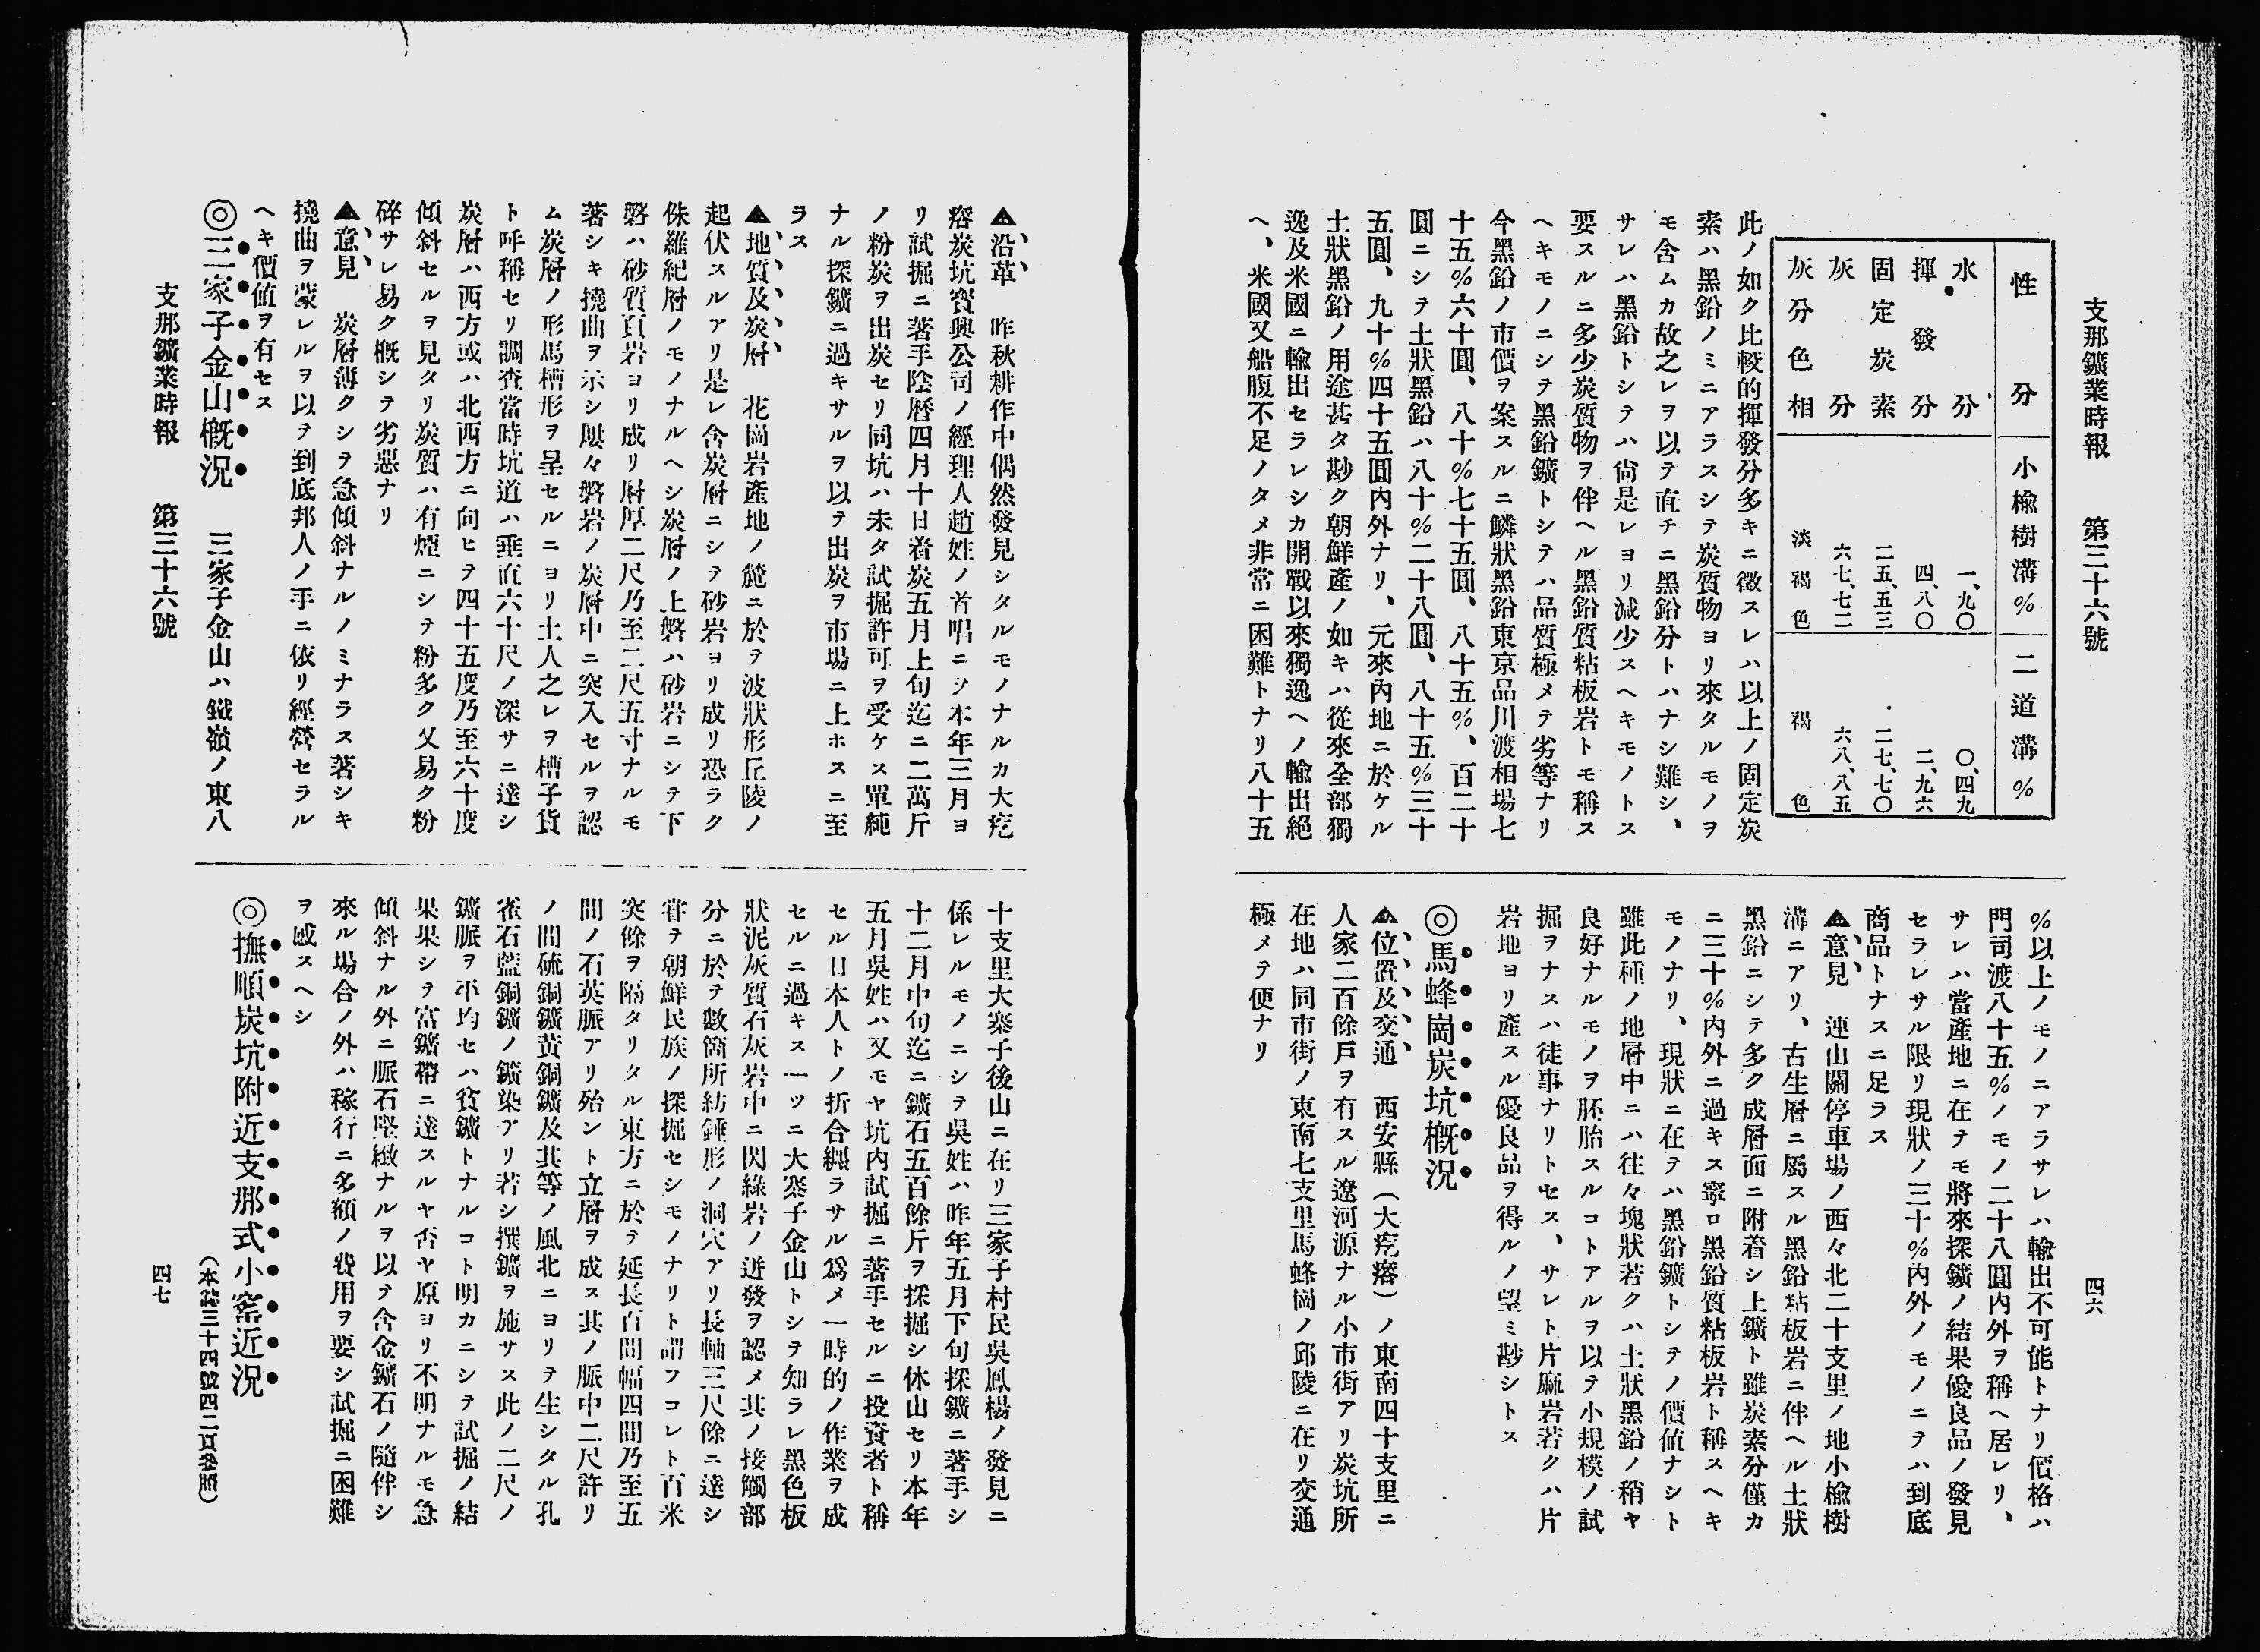 支那鑛業時報　第三十六號
四六
性分　小楡樹溝%　二道溝%
水分　一、九〇　〇、四九
揮發分　四、八〇　二、九六
固定炭素　二五、五三　二七、七〇
灰分　六七、七二　六八、八五
灰分色相　淡褐色　褐色
此ノ如ク比較的揮發分多キニ徵スレハ以上ノ固定炭
素ハ黑鉛ノミニアラスシテ炭質物ヨリ來タルモノヲ
モ含ムカ故之レヲ以テ直チニ黑鉛分トハナシ難シ、
サレハ黑鉛トシテハ尙是レヨリ減少スヘキモノトス
要スルニ多少炭質物ヲ伴ヘル黑鉛質粘板岩トモ稱ス
ヘキモノニシテ黑鉛鑛トシテハ品質極メテ劣等ナリ
今黑鉛ノ市價ヲ案スルニ鱗狀黑鉛東京品川渡相場七
十五%六十圓、八十%七十五圓、八十五%、百二十
圓ニシテ土狀黑鉛ハ八十%二十八圓、八十五%三十
五圓、九十%四十五圓内外ナリ、元來内地ニ於ケル
土狀黑鉛ノ用途甚タ尠ク朝鮮產ノ如キハ從來全部獨
逸及米國ニ輸出セラレシカ開戰以來獨逸ヘノ輸出絕
ヘ、米國又船腹不足ノタメ非常ニ困難トナリ八十五
%以上ノモノニアラサレハ輸出不可能トナリ價格ハ
門司渡八十五%ノモノ二十八圓内外ヲ稱ヘ居レリ、
サレハ當產地ニ在テモ將來探鑛ノ結果優良品ノ發見
セラレサル限リ現狀ノ三十%内外ノモノニテハ到底
商品トナスニ足ラス
▲意見　連山關停車場ノ西々北二十支里ノ地小楡樹
溝ニアリ、古生層ニ屬スル黑鉛粘板岩ニ伴ヘル土狀
黑鉛ニシテ多ク成層面ニ附着シ上鑛ト雖炭素分僅カ
ニ三十%内外ニ過キス寧ロ黑鉛質粘板岩ト稱スヘキ
モノナリ、現狀ニ在テハ黑鉛鑛トシテノ價値ナシト
雖此種ノ地層中ニハ往々塊狀若クハ土狀黑鉛ノ稍ヤ
良好ナルモノヲ胚胎スルコトアルヲ以テ小規模ノ試
掘ヲナスハ徒事ナリトセス、サレト片麻岩若クハ片
岩地ヨリ產スル優良品ヲ得ルノ望ミ尠シトス
◎馬蜂崗炭坑槪況
▲位置及交通　西安縣（大疙瘩）ノ東南四十支里ニ
人家二百餘戶ヲ有スル遼河源ナル小市街アリ炭坑所
在地ハ同市街ノ東南七支里馬蜂崗ノ邱陵ニ在リ交通
極メテ便ナリ
▲沿革　昨秋耕作中偶然發見シタルモノナルカ大疙
瘩炭坑寶興公司ノ經理人趙姓ノ首唱ニヲ本年三月ヨ
リ試掘ニ著手陰曆四月十日着炭五月上旬迄ニ二萬斤
ノ粉炭ヲ出炭セリ同坑ハ未タ試掘許可ヲ受ケス單純
ナル探鑛ニ過キサルヲ以テ出炭ヲ市場ニ上ホスニ至
ラス
▲地質及炭層　花崗岩產地ノ麓ニ於テ波狀形丘陵ノ
起伏スルアリ是レ含炭層ニシテ砂岩ヨリ成リ恐ラク
侏羅紀層ノモノナルヘシ炭層ノ上磐ハ砂岩ニシテ下
磐ハ砂質頁岩ヨリ成リ層厚二尺乃至二尺五寸ナルモ
著シキ撓曲ヲ示シ屢々磐岩ノ炭層中ニ突入セルヲ認
ム炭層ノ形馬槽形ヲ呈セルニヨリ土人之レヲ槽子貨
ト呼稱セリ調查當時坑道ハ垂直六十尺ノ深サニ達シ
炭層ハ西方或ハ北西方ニ向ヒテ四十五度乃至六十度
傾斜セルヲ見タリ炭質ハ有煙ニシテ粉多ク又易ク粉
碎サレ易ク槪シテ劣惡ナリ
▲意見　炭層薄クシテ急傾斜ナルノミナラス著シキ
撓曲ヲ蒙レルヲ以テ到底邦人ノ手ニ依リ經營セラル
ヘキ價値ヲ有セス
◎三家子金山槪況　三家子金山ハ鐵嶺ノ東八
十支里大寨子後山ニ在リ三家子村民吳鳳楊ノ發見ニ
係レルモノニシテ吳姓ハ昨年五月下旬探鑛ニ著手シ
十二月中旬迄ニ鑛石五百餘斤ヲ採掘シ休山セリ本年
五月吳姓ハ又モヤ坑内試掘ニ著手セルニ投資者ト稱
セル日本人トノ折合纏ラサル爲メ一時的ノ作業ヲ成
セルニ過キス一ツニ大寨子金山トシテ知ラレ黑色板
狀泥灰質石灰岩中ニ閃綠岩ノ迸發ヲ認メ其ノ接觸部
分ニ於テ數箇所紡錘形ノ洞穴アリ長軸三尺餘ニ達シ
甞テ朝鮮民族ノ探掘セシモノナリト謂フコレト百米
突餘ヲ隔タリタル東方ニ於テ延長百間幅四間乃至五
間ノ石英脈アリ殆ント立層ヲ成ス其ノ脈中二尺許リ
ノ間硫銅鑛黃銅鑛及其等ノ風北ニヨリテ生シタル孔
雀石藍銅鑛ノ鑛染アリ若シ撰鑛ヲ施サス此ノ二尺ノ
鑛脈ヲ平均セハ貧鑛トナルコト明カニシテ試掘ノ結
果果シテ富鑛帶ニ達スルヤ否ヤ原ヨリ不明ナルモ急
傾斜ナル外ニ脈石堅緻ナルヲ以テ含金鑛石ノ隨伴シ
來ル場合ノ外ハ稼行ニ多額ノ費用ヲ要シ試掘ニ困難
ヲ感スヘシ
◎撫順炭坑附近支那式小窯近況
（本誌三十四號四二頁參照）
支那鑛業時報　第三十六號
四七